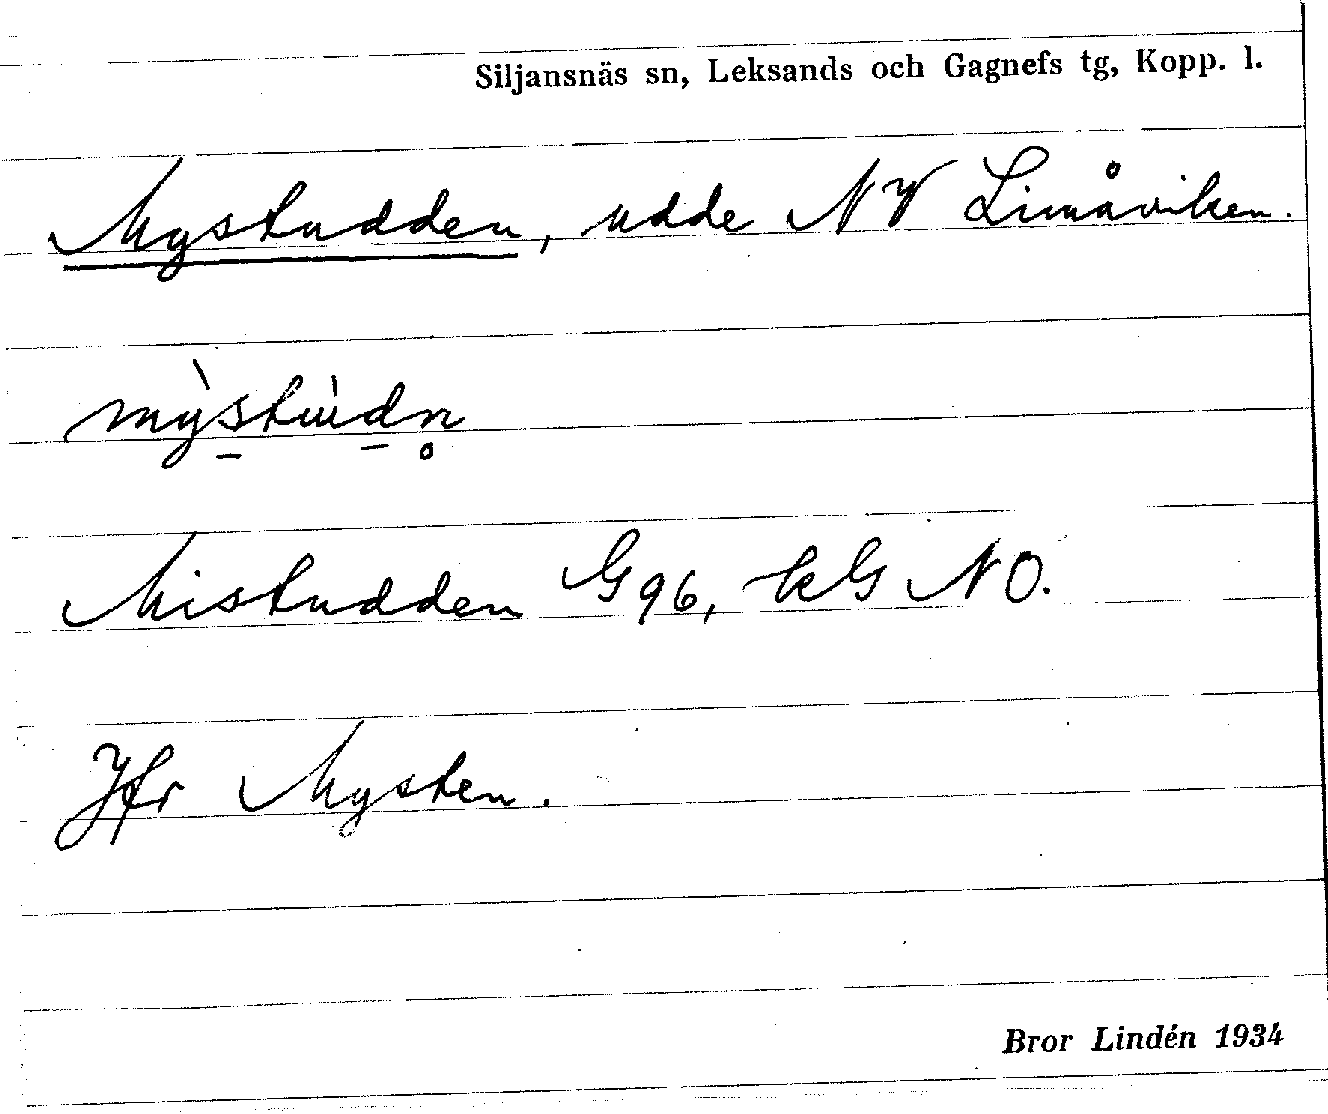 Siljansnäs sn, Leksands och Gagnefs tg, Kopp. l.
Mystudden, udde NV Limåviken.
mỳs̱tùḏn̥
Mistudden G96, kG NO.
Jfr Mysten.
Bror Lindén 1934